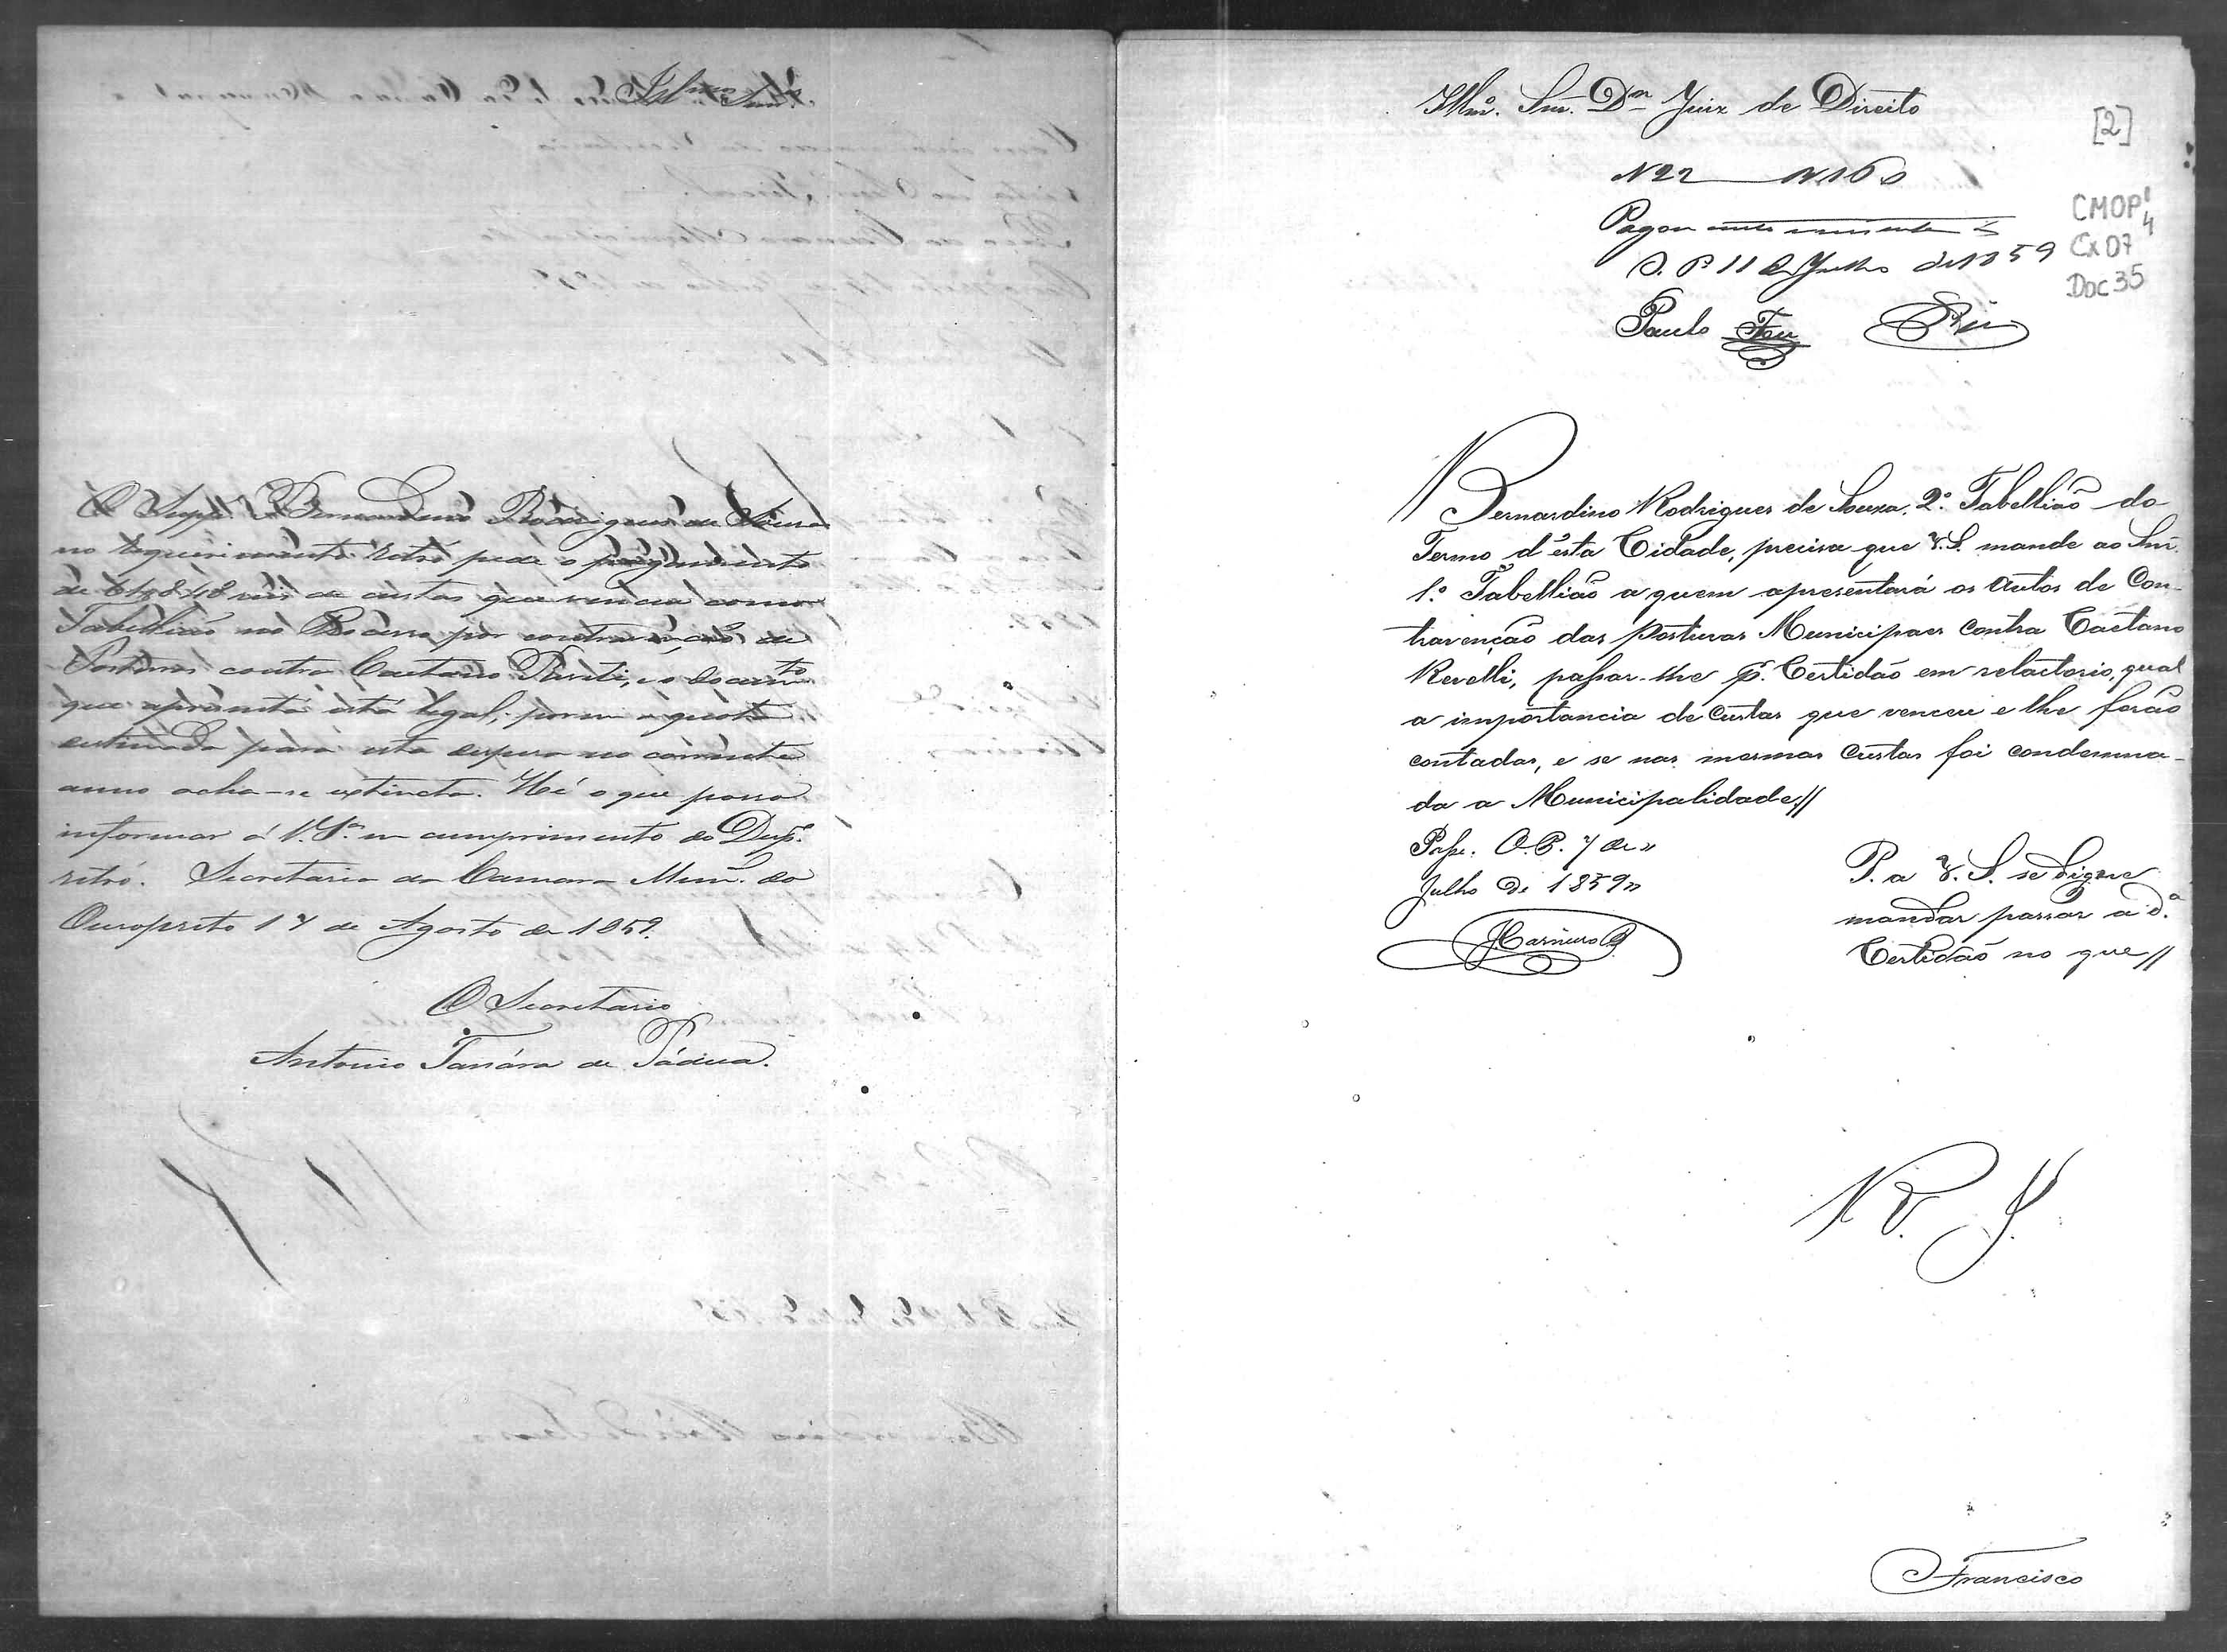 Illmo. Snr.
O Suppe. Bernardino Rodrigues de Souza
no requerimento retro pede o pagamento
de reis de custas que venceu como
Tabellião no Processo por contravenção de
Posturas contra Caetano, e o docum.to
que apresenta está legal, porem a quota
estimada para esta despesa no corrente
anno acha-se extincta. Hé o que posso
informar á V. S.ª em cumprimento do Desp.º
retró. Secretaria da Camara Mun. do
Ouropreto 17 de Agosto de 1859.
O Secretario
Antonio de Pádua.
Illmo. Snr. Dr. Juiz de Direito
[2]
N 22 160
Pagou cento e sessenta rs
O. P. 11 de Julho de 1859
CMOP 1/4
Cx 07
Doc 35
Paulo
Bernardino Rodrigues de Souza, 2.º Tabellião do
Termo d'esta Cidade, precisa que V. S. mande ao Snr.
1.º Tabellião a quem apresentará os autos de Con-
travenção das Posturas Municipaes contra Caetano
Revelli, passar-lhe p. Certidão em relactorio, qual
a importancia de Custas que venceu e lhe forão
contadas, e se nas mesmas Custas foi condemna-
da a Municipalidade//
Passe. O. P. 7 de
Julho de 1859
Carneiro
P. a V. S. se digne
mandar passar a d.ª
Certidão no que//
Francisco